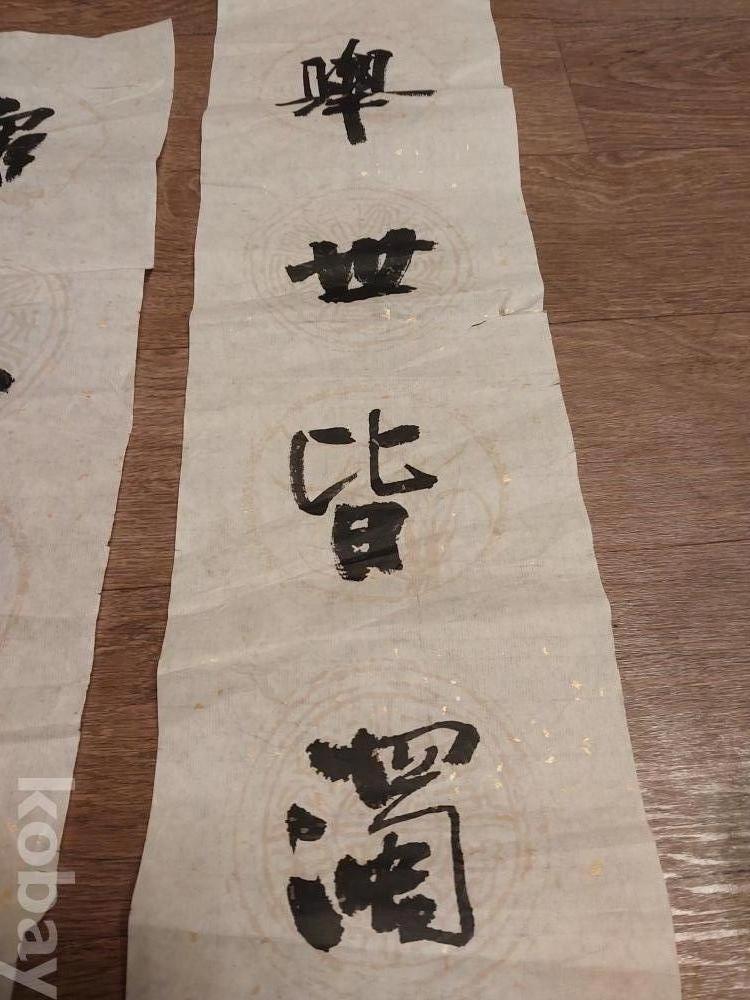 擧世皆濁
kobay